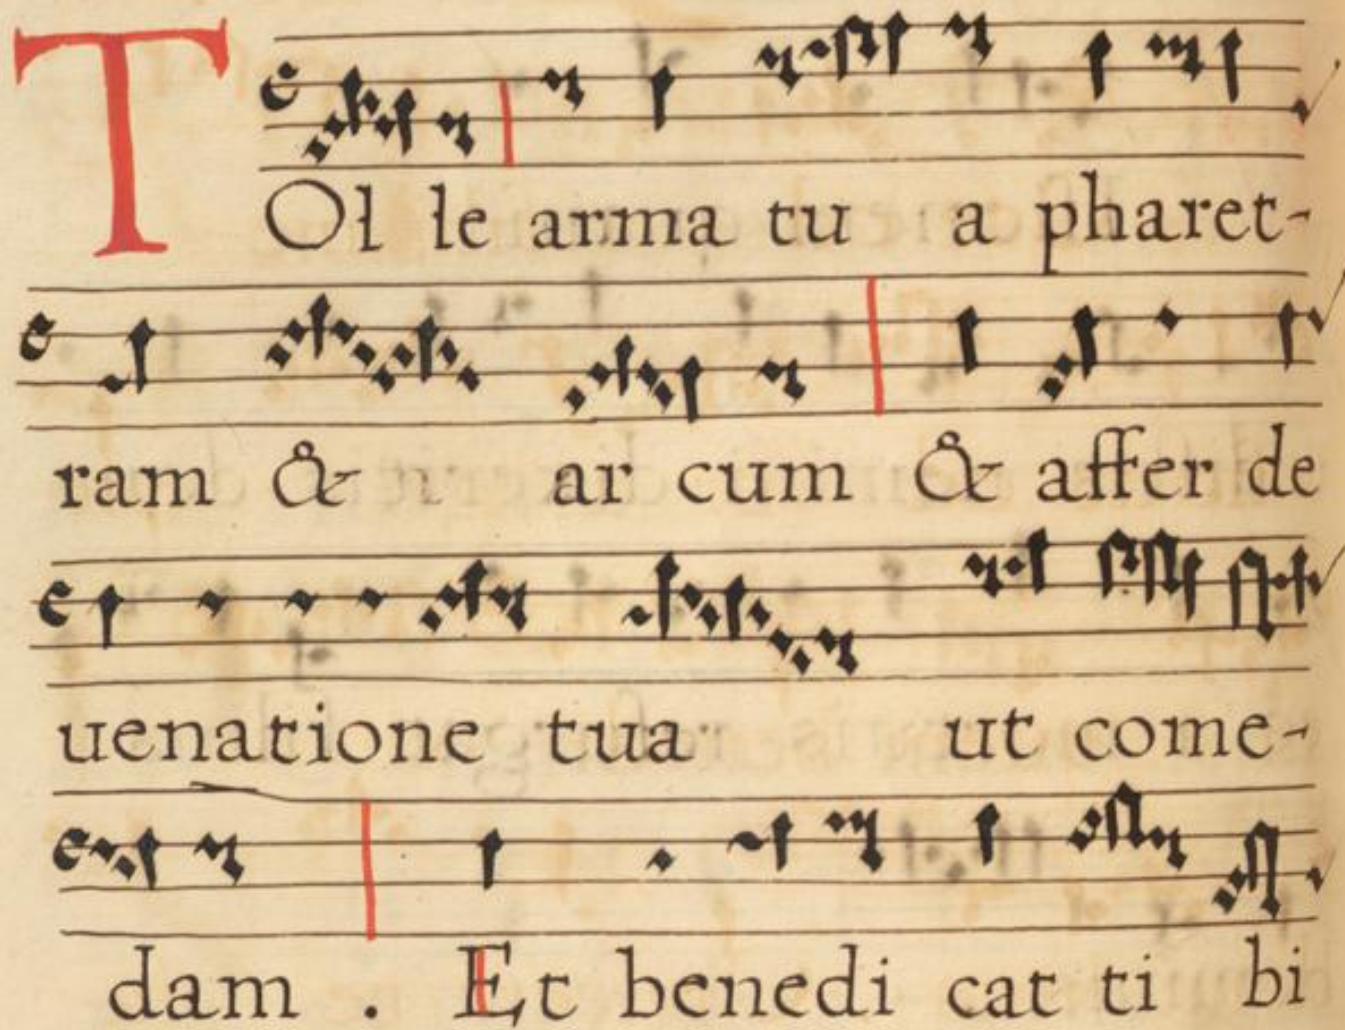 TOl le arma tu a pharet-
ram & ar cum & affer de
uenatione tua ut come-
dam . Et benedi cat ti bi